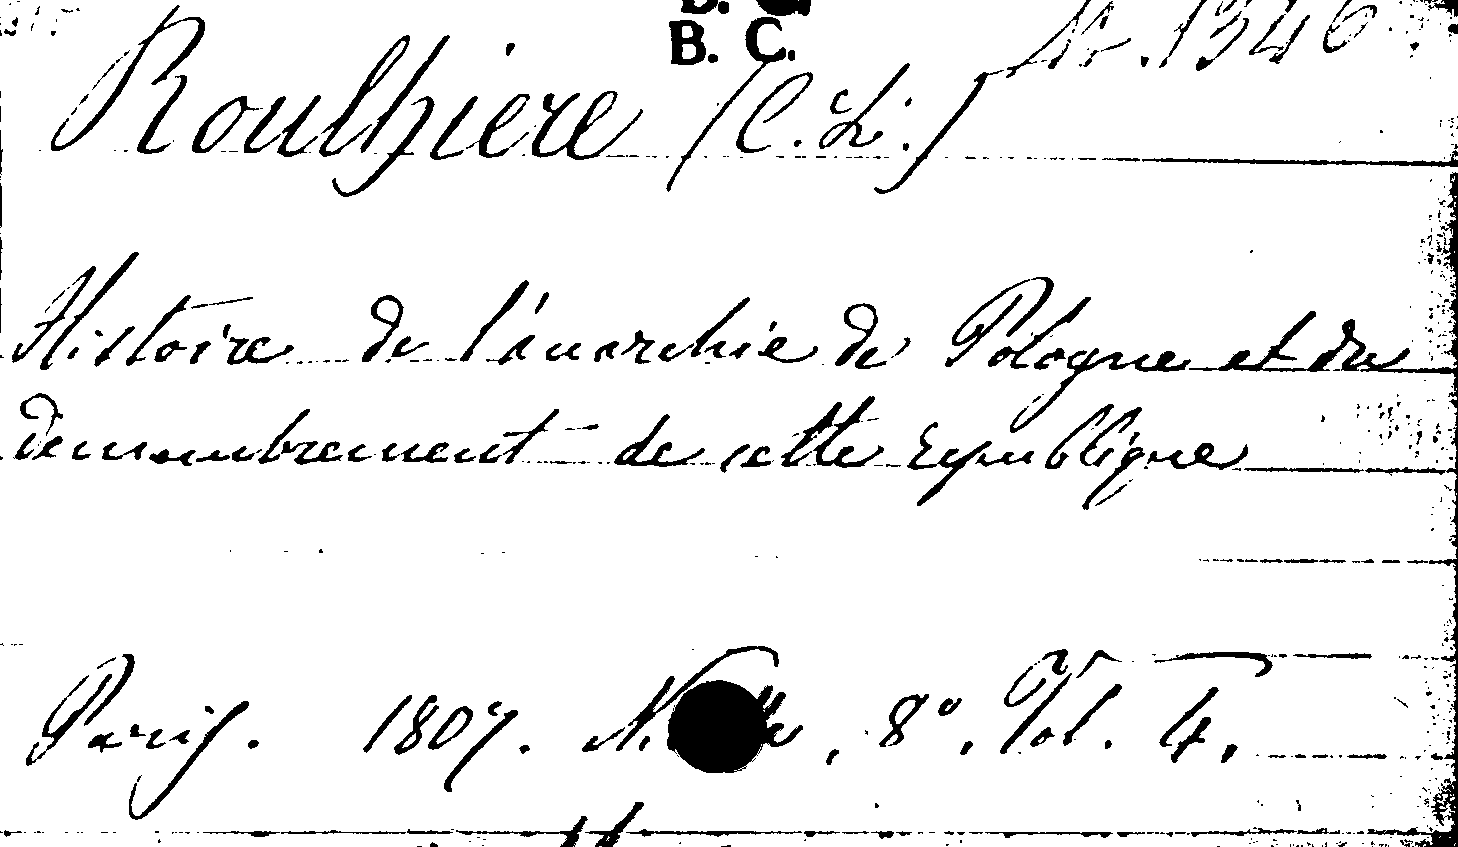 B. C.
No. 1346.
Roulhiere (C. L.)
Histoire de l'anarchie de Pologne et du
demembrement de cette republique
Paris. 1807. 8º. Vol. 4.